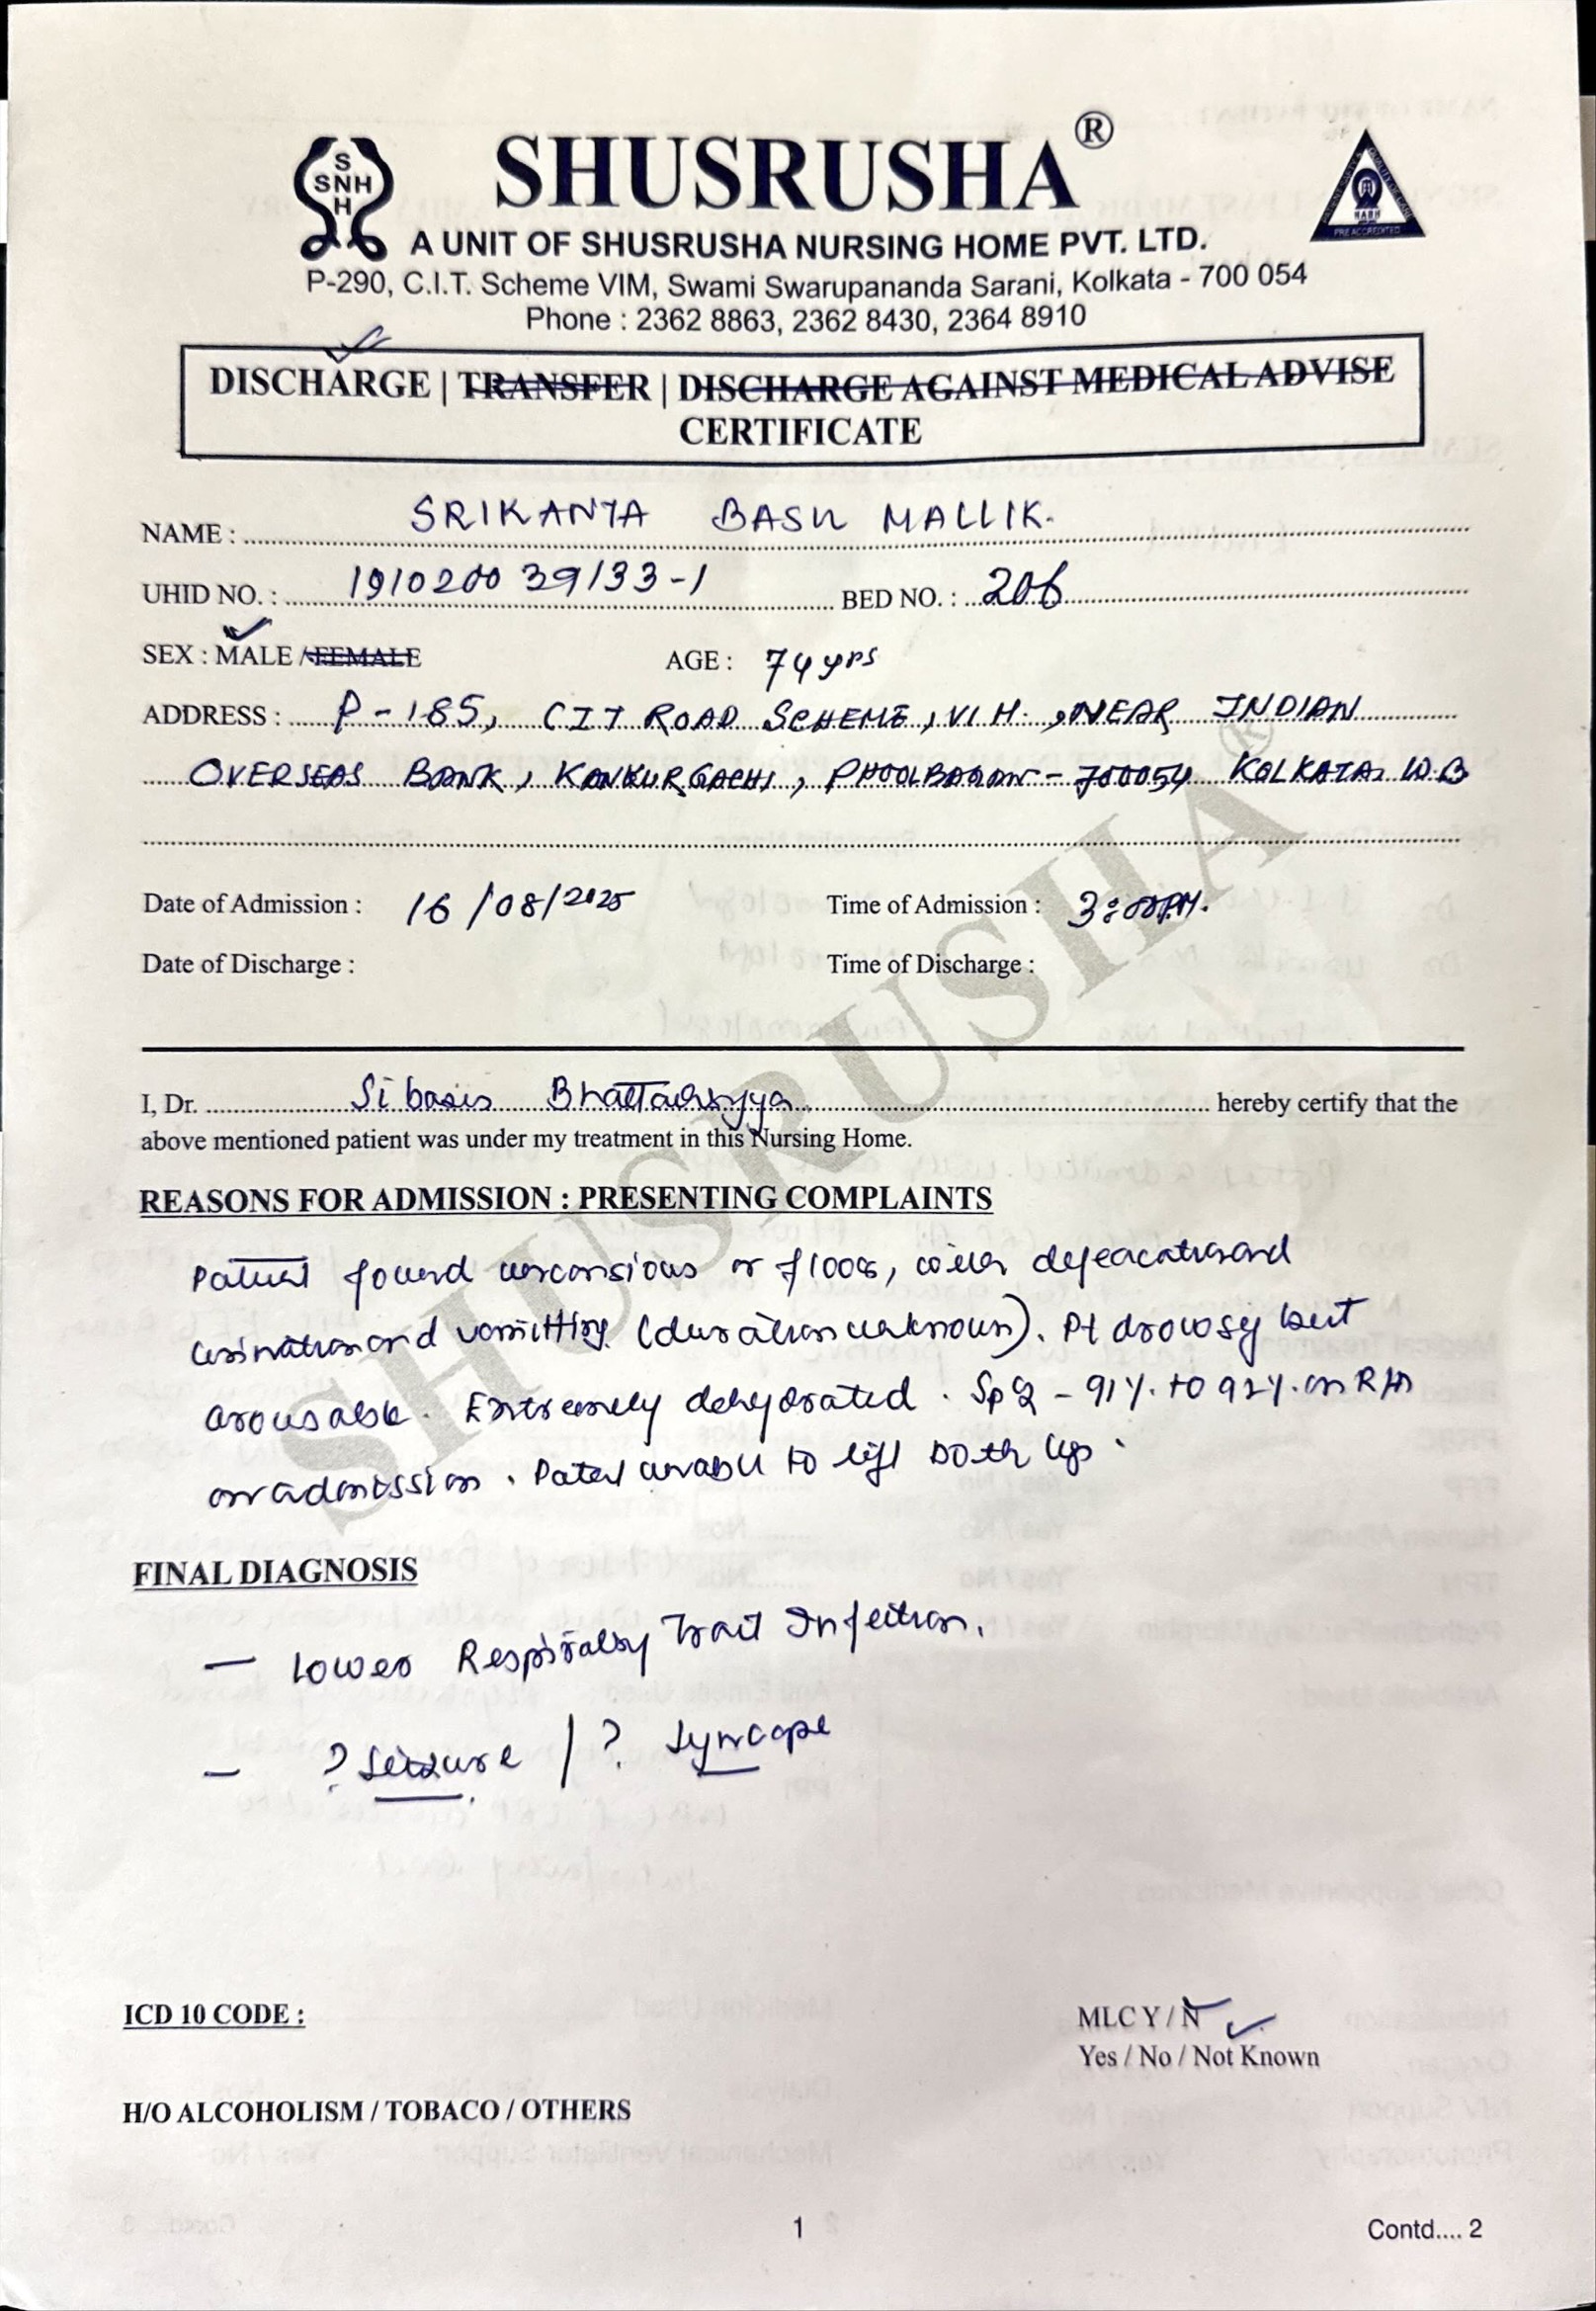 SHUSRUSHA®
S
SNH
H
A UNIT OF SHUSRUSHA NURSING HOME PVT. LTD.
PRE ACCREDITED
P-290, C.I.T. Scheme VIM, Swami Swarupananda Sarani, Kolkata - 700 054
Phone : 2362 8863, 2362 8430, 2364 8910
DISCHARGE | TRANSFER | DISCHARGE AGAINST MEDICAL ADVISE
CERTIFICATE
NAME : SRIKANTA BASU MALLIK.
UHID NO. : 191020039133-1 BED NO. : 206
SEX : MALE / FEMALE AGE : 74 yrs
ADDRESS : P-185, CIT ROAD SCHEME, VI M, NEAR INDIAN
OVERSEAS BANK, KANKURGACHI, PHOOLBAGAN - 700054 KOLKATA, W.B
Date of Admission : 16/08/2025 Time of Admission : 3:00PM.
Date of Discharge : Time of Discharge :
I, Dr. Sibasis Bhattacharyya hereby certify that the
above mentioned patient was under my treatment in this Nursing Home.
REASONS FOR ADMISSION : PRESENTING COMPLAINTS
Patient found unconsious on floor, with defeacation and
urination and vomitting (duration unknown). Pt drowsy but
arousable. Extremely dehydrated. SpO2 - 91% to 92% on R/A
on admission. Patient unable to lift both legs.
FINAL DIAGNOSIS
- Lower Respiratory Tract Infection.
- ? Seizure / ? Syncope
ICD 10 CODE : MLC Y / N
Yes / No / Not Known
H/O ALCOHOLISM / TOBACO / OTHERS
1 Contd.... 2
SHUSRUSHA®